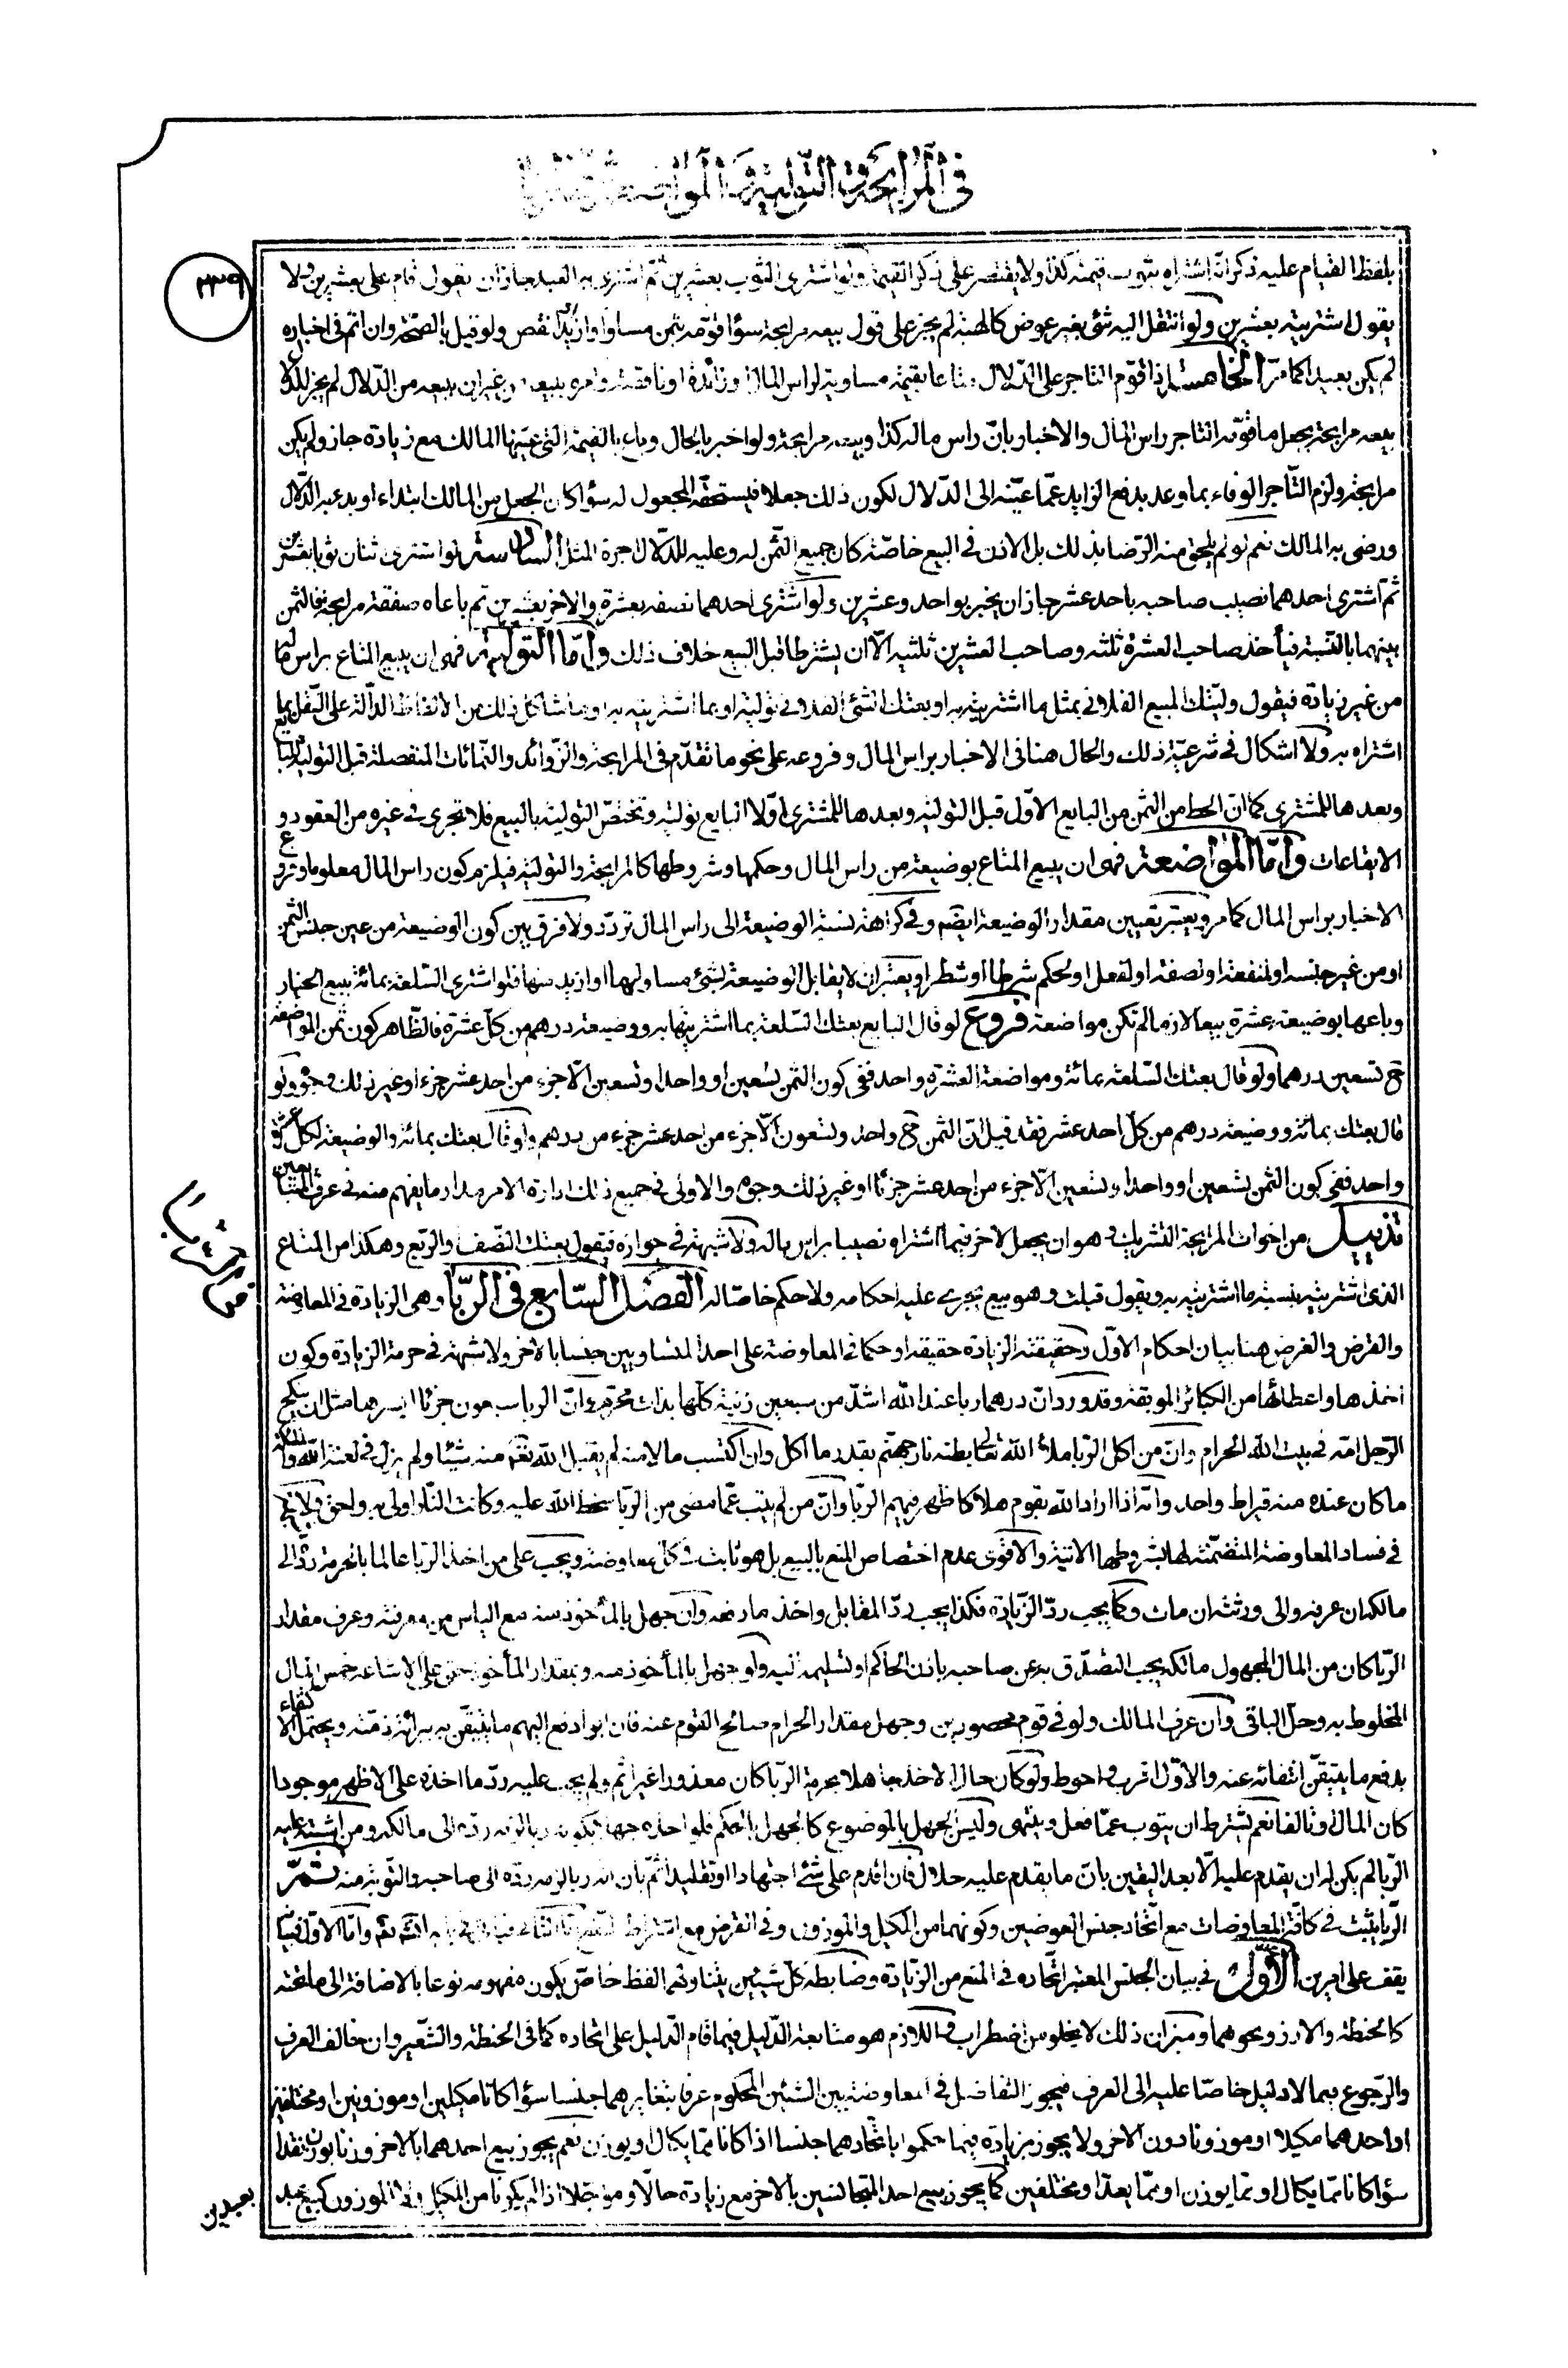 في المرابحة والتولية والمواضعة
٢٣٩
بلفظ القيام عليه ذكر انه اشتراه بثوب قيمته كذا ولا يقتصر على ذكر القيمة ولو اشترى الثوب بعشرين ثم اشترى به العبد جاز ان يقول قام على بعشرين ولا
يقول اشتريته بعشرين ولو انتقل اليه شئ بغير عوض كالهبة لم يجز على قول بيعه مرابحة سواء قومه بثمن مساو او ازيد او انقص ولو قيل بالصحة وان اثم في اخباره
لم يكن بعيدا كما مر الخامسة اذا قوم التاجر على الدلال متاعا بقيمة مساوية لراس المال او زائدة او ناقصة وامره ببيعه من غير ان يبيعه من الدلال لم يجز للدلال
بيعه مرابحة بجعل ما قومه التاجر راس المال والاخبار بان راس ماله كذا وبيعه مرابحة ولو اخبر بالحال وباع بالقيمة التي عينها المالك مع زيادة جاز ولم يكن
مرابحة ولزم التاجر الوفاء بما وعد بدفع الزايد عما عينه الى الدلال لكون ذلك جعلا فيستحقه المجعول له سواء كان الجعل من المالك ابتداء او بدء به الدلال
ورضى به المالك نعم لو لم يلحق منه الرضا بذلك بل الاذن في البيع خاصة كان جميع الثمن له وعليه للدلال اجرة المثل السادسة لو اشترى اثنان ثوبا بعشرين
ثم اشترى احدهما نصيب صاحبه باحد عشر جاز ان يخبر بواحد وعشرين ولو اشترى احدهما نصفه بعشرة والاخر بعشرين ثم باعاه صفقة مرابحة فالثمن
بينهما بالنسبة فيأخذ صاحب العشرة ثلثه وصاحب العشرين ثلثيه الا ان يشترطا قبل البيع خلاف ذلك واما التولية فهي ان يبيع المتاع براس ماله
من غير زيادة فيقول وليتك المبيع الفلاني بمثل ما اشتريته به او بعتك الشئ الفلاني تولية او بما اشتريته به وما شاكل ذلك من الالفاظ الدالة على النقل بما
اشتراه به ولا اشكال في شرعية ذلك والحال هنا في الاخبار براس المال وفروعه على نحو ما تقدم في المرابحة والزوائد والنمائات المنفصلة قبل التولية للبايع
وبعدها للمشترى كما ان الحط من الثمن من البايع الاول قبل التولية وبعدها للمشترى اولا البايع تولية وتختص التولية بالبيع فلا تجرى في غيره من العقود و
الايقاعات واما المواضعة فهي ان يبيع المتاع بوضيعة من راس المال وحكمها وشروطها كالمرابحة والتولية فيلزم كون راس المال معلوما وفروع
الاخبار براس المال كما مر ويعتبر تعيين مقدار الوضيعة ايضا وفي كراهة نسبة الوضيعة الى راس المال تردد ولا فرق بين كون الوضيعة من عين جنس الثمن
او من غير جنسه او لمنفعة او لصفة او لفعل او لحكم شرطا او شطرا ويعتبر ان لا يقابل الوضيعة بشئ مساو لهما او ازيد منها فلو اشترى السلعة بمائة ببيع الخيار
وباعها بوضيعة عشرة بيعا لازما لم تكن مواضعة فروع لو قال البايع بعتك السلعة بما اشتريتها به ووضيعة درهم من كل عشرة فالظاهر كون ثمن المواضعة
ح تسعين درهما ولو قال بعتك السلعة بمائة ومواضعة العشرة واحد ففي كون الثمن تسعين او واحدا وتسعين الا جزء من احد عشر جزء او غير ذلك وجوه ولو
قال بعتك بمائة ووضيعة درهم من كل احد عشر فقد قيل ان الثمن ح واحد وتسعون الا جزء من احد عشر جزء من درهم ولو قال بعتك بمائة والوضيعة لكل عشرة
واحد ففي كون الثمن تسعين او واحدا وتسعين الا جزء من احد عشر جزئا او غير ذلك وجوه والاولى في جميع ذلك ادارة الامر مدار ما يفهم منه في عرف المتبايعين
تذييل من اخوات المرابحة التشريك وهو ان يجعل الاخر فيما اشتراه نصيبا براس ماله ولا شبهة في جوازه فيقول بعتك النصف والربع وهكذا من المتاع
الذى اشتريته بنسبة ما اشتريته به ويقول قبلت وهو بيع يجرى عليه احكامه ولا حكم خاصا له الفصل السابع في الربا وهى الزيادة في المعاوضة
والقرض والغرض هنا بيان احكام الاول وحقيقته الزيادة حقيقة او حكما في المعاوضة على احد المتساويين جنسا بالاخر ولا شبهة في حرمة الزيادة وكون
اخذها واعطائها من الكبائر الموبقة وقد ورد ان درهما ربا عند الله اشد من سبعين زنية كلها بذات محرم وان الربا سبعون جزئا ايسرها مثل ان ينكح
الرجل امه في بيت الله الحرام وان من اكل الربا ملأ الله تعالى بطنه نار جهنم بقدر ما اكل وان اكتسب مالا منه لم يقبل الله تعالى منه شيئا ولم يزل في لعنة الله والملائكة
ما كان عنده منه قيراط واحد وانه اذا اراد الله بقوم هلاكا ظهر فيهم الربا وان من لم يتب عما مضى من الربا سخط الله عليه وكانت النار اولى به واحق
في فساد المعاوضة المتضمنة لها بشروطها الاتية والاقوى عدم اختصاص المنع بالبيع بل هو ثابت في كل معاوضة ويجب على من اخذ الربا عالما بالحرمة رده الى
مالكه ان عرفه والى ورثته ان مات وكما يجب رد الزيادة فكذا يجب رد المقابل واخذ ما دفعه وان جهل بالمأخوذ منه مع الياس من معرفته وعرف مقدار
الربا كان من المال المجهول مالكه يجب التصدق به عن صاحبه باذن الحاكم او تسليمه اليه ولو جهل بالمأخوذ منه وبمقدار المأخوذ حتى على الاشاعة خمس المال
المخلوط به وحل الباقى وان عرف المالك ولو في قوم محصورين وجهل مقدار الحرام صالح القوم عنه فان ابوا دفع اليهم ما يتيقن به برائة ذمته ويحتمل الاكتفاء
بدفع ما يتيقن انتفائه عنه والاول اقرب واحوط ولو كان حال الاخذ جاهلا بحرمة الربا كان معذورا غير اثم ولم يجب عليه رد ما اخذه على الاظهر موجودا
كان المال او تالفا نعم يشترط ان يتوب عما فعل وينتهى وليس الجهل بالموضوع كالجهل بالحكم فلو اخذه جهلا بكونه ربا لزمه رده الى مالكه ومن اشتبه عليه
الربا لم يكن له ان يقدم عليه الا بعد اليقين بان ما يقدم عليه حلال فان اقدم على شئ اجتهادا او تقليدا ثم بان انه ربا لزمه رده الى صاحبه والتوبة منه ثم ان
الربا يثبت في كافة المعاوضات مع اتحاد جنس العوضين وكونهما من المكيل والموزون وفى القرض مع اشتراط النفع اما الثانى فيأتى في بابه انشاء الله تعالى واما الاول فبيانه
يقف على امرين الاول في بيان الجنس المعتبر اتحاده في المنع من الزيادة وضابطه كل شيئين يتناولهما لفظ خاص يكون مفهومه نوعا بالاضافة الى ما تحته
كالحنطة والارز ونحوهما وميزان ذلك لا يخلو من اضطراب واللازم هو متابعة الدليل فيما قام الدليل على اتحاده كما في الحنطة والشعير وان خالف العرف
والرجوع فيما لا دليل خاصا عليه الى العرف فيجوز التفاضل في المعاوضة بين الشيئين المحكوم عرفا بتغايرهما جنسا سواء كانا مكيلين او موزونين او مختلفين
او احدهما مكيلا او موزونا دون الاخر ولا يجوز بزيادة فيما حكموا باتحادهما جنسا اذا كانا مما يكال او يوزن نعم يجوز بيع احدهما بالاخر وزنا بوزن نقدا
سواء كانا مما يكال او مما يوزن او مما يعد او مختلفين كما يجوز بيع احد المتجانسين بالاخر مع زيادة حالا ومؤجلا اذا لم يكونا من المكيل ولا الموزون كبيع عبد
بعبدين